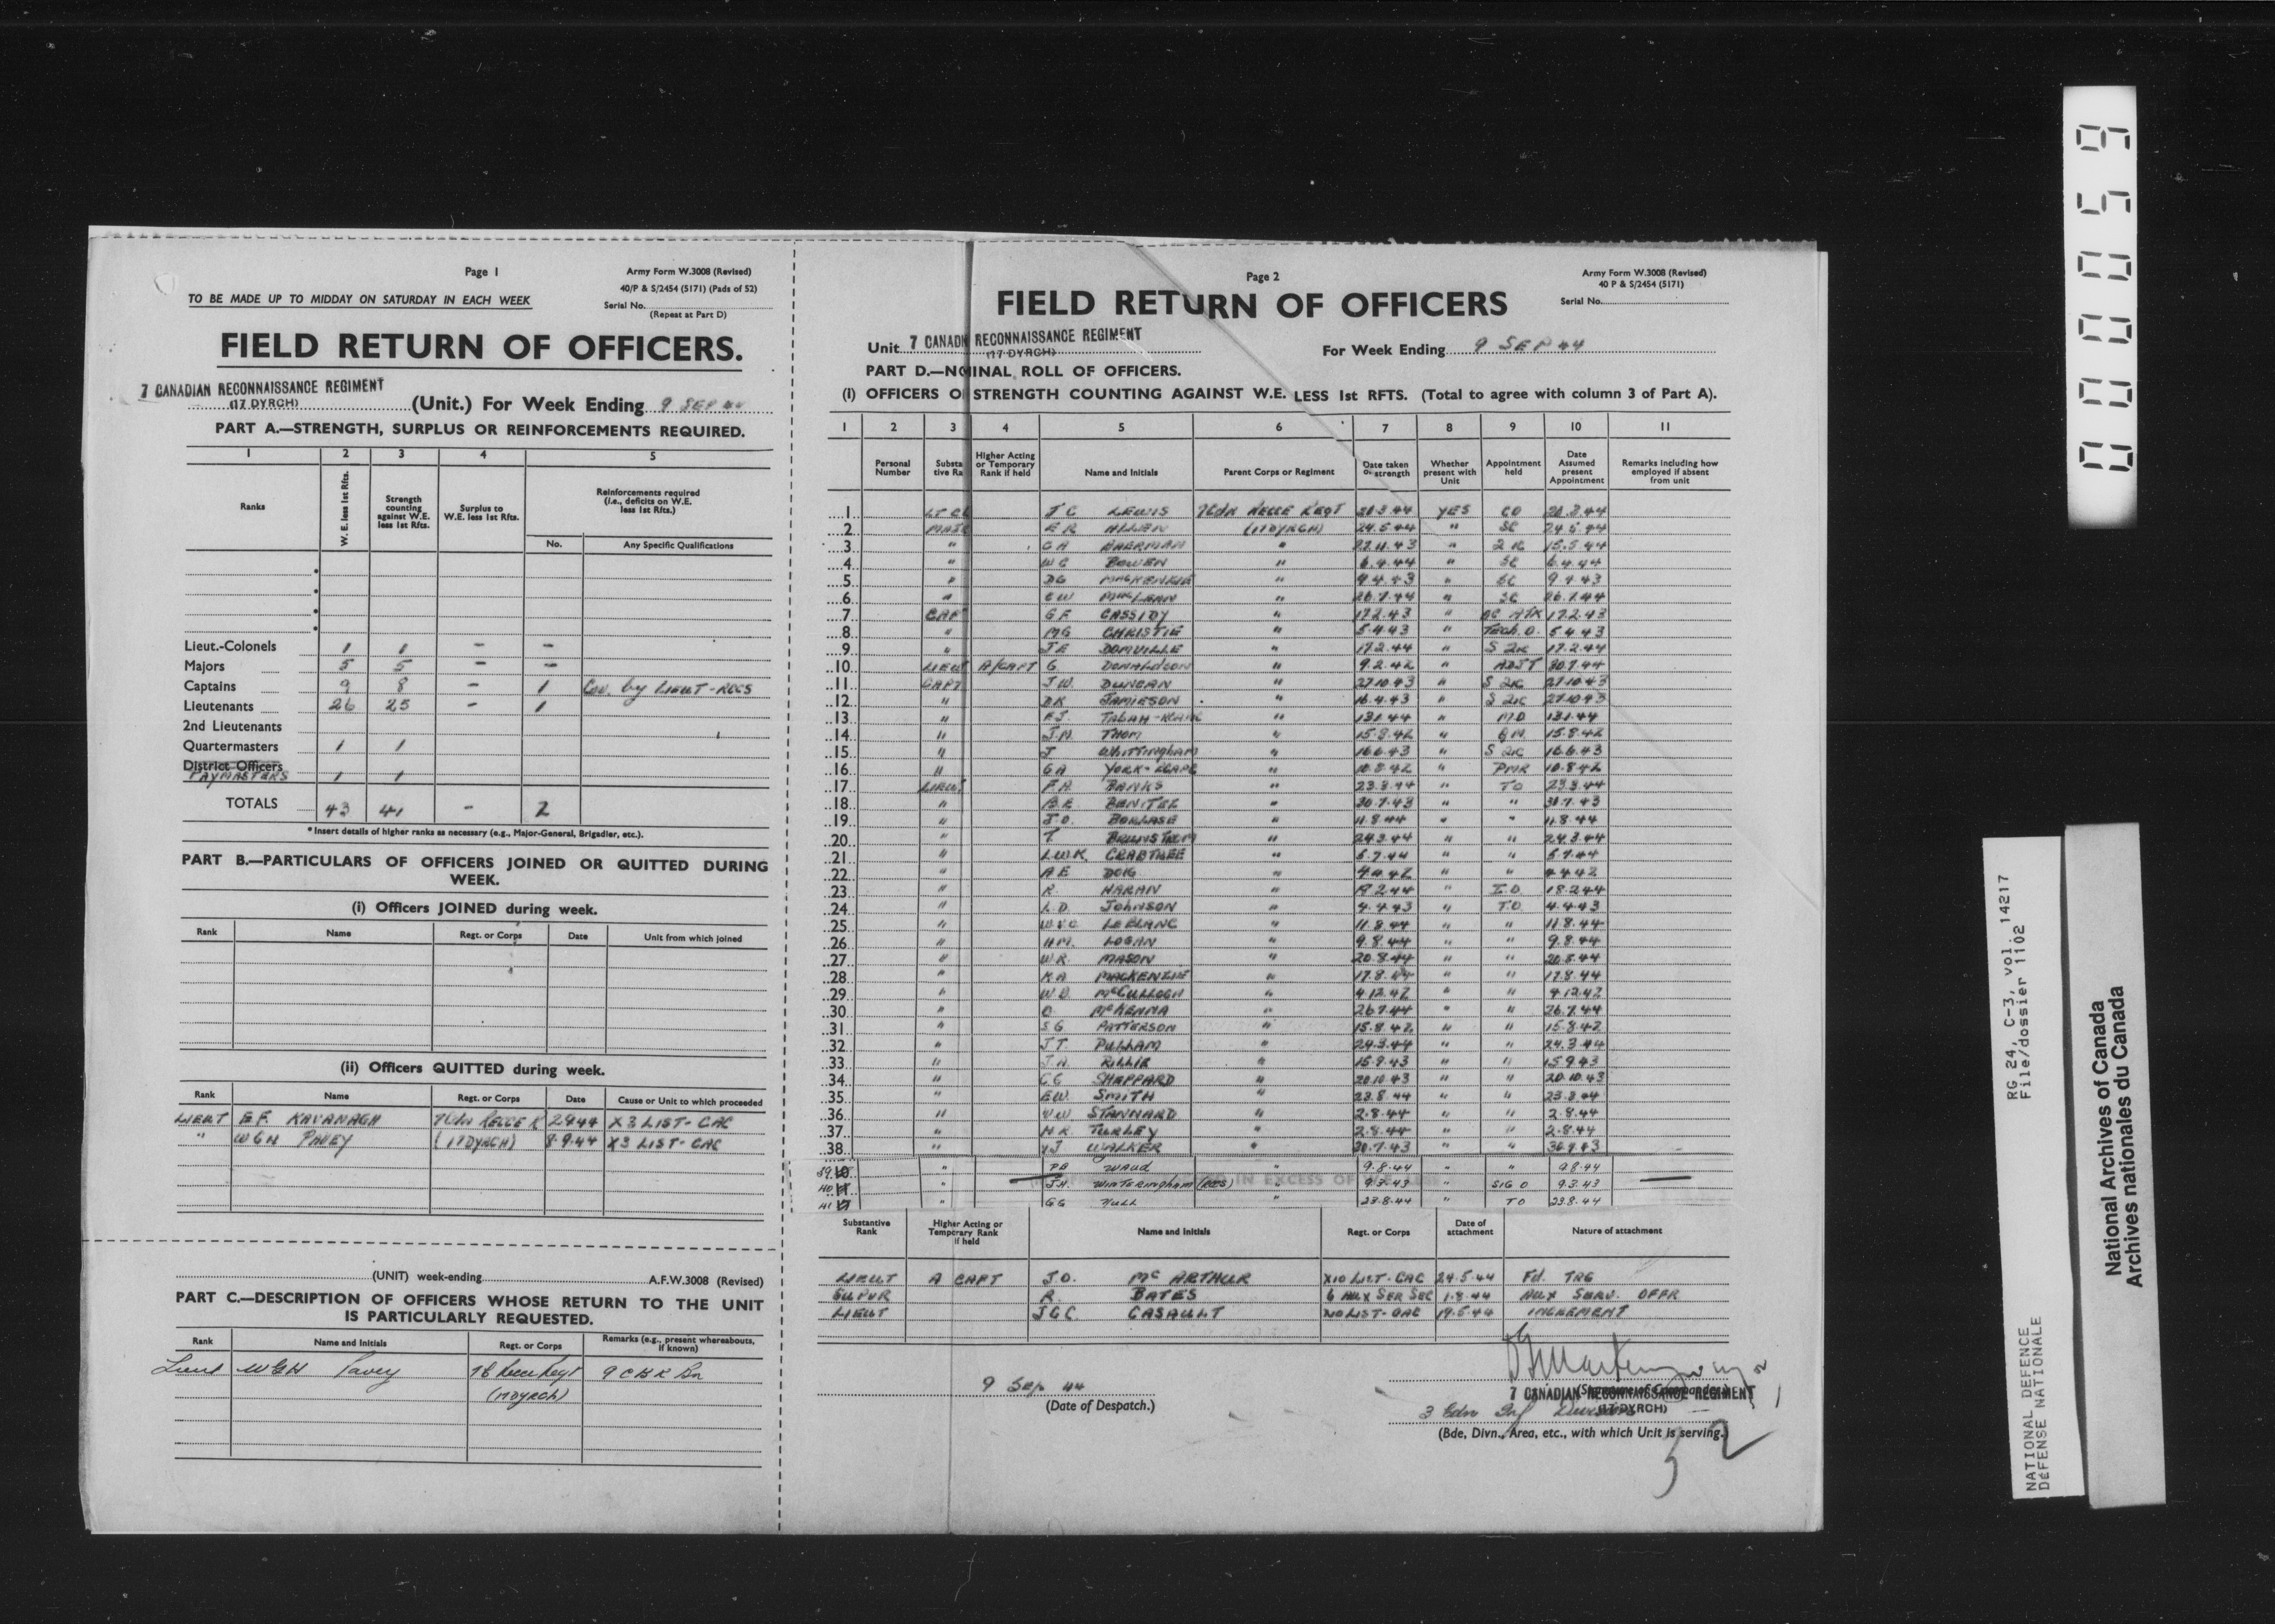 Page 1
Army Form W.3008 (Revised)
40/P & S/2454 (5171) (Pads of 52)
TO BE MADE UP TO MIDDAY ON SATURDAY IN EACH WEEK
Serial No.
(Repeat at Part D)
FIELD RETURN OF OFFICERS.
7 CANADIAN RECONNAISSANCE REGIMENT
(17 DYRCH) (Unit.) For Week Ending 9 SEP 44
PART A.—STRENGTH, SURPLUS OR REINFORCEMENTS REQUIRED.
1 2 3 4 5
Ranks
W. E. less 1st Rfts.
Strength counting against W.E. less 1st Rfts.
Surplus to W.E. less 1st Rfts.
Reinforcements required (i.e., deficits on W.E. less 1st Rfts.)
No. Any Specific Qualifications
Lieut.-Colonels 1 1 - -
Majors 5 5 - -
Captains 9 8 - 1 Cov. by LIEUT-RCCS
Lieutenants 26 25 - 1
2nd Lieutenants
Quartermasters 1 1
District Officers
PAYMASTERS 1 1
TOTALS 43 41 - 2
* Insert details of higher ranks as necessary (e.g., Major-General, Brigadier, etc.).
PART B.—PARTICULARS OF OFFICERS JOINED OR QUITTED DURING
WEEK.
(i) Officers JOINED during week.
Rank Name Regt. or Corps Date Unit from which joined
(ii) Officers QUITTED during week.
Rank Name Regt. or Corps Date Cause or Unit to which proceeded
LIEUT KAVANAGH 7 Cdn RECCE R X3 LIST-CAC
" WGH PAVEY (17DYRCH) 8-9-44 X3 LIST-CAC
(UNIT) week-ending A.F.W.3008 (Revised)
PART C.—DESCRIPTION OF OFFICERS WHOSE RETURN TO THE UNIT
IS PARTICULARLY REQUESTED.
Rank Name and Initials Regt. or Corps Remarks (e.g., present whereabouts, if known)
Lieut WGH Pavey 7C Recce Regt 9 C B R Bn
(17DYRCH)
Page 2
Army Form W.3008 (Revised)
40 P & S/2454 (5171)
FIELD RETURN OF OFFICERS
Serial No.
Unit 7 CANADN RECONNAISSANCE REGIMENT
(17 DYRCH)
For Week Ending 9 SEP 44
PART D.—NOMINAL ROLL OF OFFICERS.
(1) OFFICERS ON STRENGTH COUNTING AGAINST W.E. LESS 1st RFTS. (Total to agree with column 3 of Part A).
1 2 3 4 5 6 7 8 9 10 11
Personal Number
Substantive Ra
Higher Acting or Temporary Rank if held
Name and Initials
Parent Corps or Regiment
Date taken on strength
Whether present with Unit
Appointment held
Date Assumed present Appointment
Remarks including how employed if absent from unit
1 LT CL TC LEWIS 7Cdn RECCE REGT YES CO
2 MAJR ER ALLEN (17DYRCH) 24.5.44 " SC 24.5.44
3 " CA BHERMAN " 27.11.43 " 2 IC 15.5.44
4 " WC BOWEN " 6.4.44 " SC 6.4.44
5 " DG MACKENZIE " 9.4.43 " SC 9.4.43
6 " CW MacLEAN " 26.7.44 " SC 26.7.44
7 CAPT GF CASSIDY " 17.2.43 " OC ATK 17.2.43
8 " MG CHRISTIE " 5.4.43 " Tech. O. 5.4.43
9 " JE DOMVILLE " 17.2.44 " S 2IC 17.2.44
10 LIEUT A/CAPT G. DONALDSON " 9.2.42 " ADJT 30.7.44
11 CAPT J.W. DUNCAN " 27.10.43 " S 2IC 27.10.43
12 " DK JAMIESON " 16.4.43 " S 2IC 27.10.43
13 " " 13.1.44 " MO 13.1.44
14 " J.N. THOM " 15.8.42 " QM 15.8.42
15 " J WHITTINGHAM " 16.6.43 " S 2IC 16.6.43
16 " GA YORK-RCAPC " 10.8.42 " PMR 10.8.42
17 LIEUT F.A. BANKS " 23.8.44 " TO 23.8.44
18 " B.E. BENITEZ " 30.7.43 " " 30.7.43
19 " J.O. BORLASE " 11.8.44 " " 11.8.44
20 " T. " 24.3.44 " " 24.3.44
21 " L.W.K. CRABTREE " 5.7.44 " " 5.7.44
22 " AE DOIG " 4.4.42 " " 4.4.42
23 " R. HARAN " " I.O. 18.2.44
24 " L.D. JOHNSON " 4.4.43 " T.O. 4.4.43
25 " LEBLANC " 11.8.44 " " 11.8.44
26 " H.M. LOGAN " 9.8.44 " " 9.8.44
27 " W.R. MASON " 20.8.44 " " 20.8.44
28 " KA MACKENZIE " 17.8.44 " " 17.8.44
29 " W.D. McCULLOGH " 4.12.42 " " 4.12.42
30 " O McKENNA " 26.7.44 " " 26.7.44
31 " S.G. PATTERSON " 15.8.42 " " 15.8.42
32 " J.T. PULLAM " 24.3.44 " " 24.3.44
33 " J.A. RILLIE " 15.9.43 " " 15.9.43
34 " CC SHEPPARD " 20.10.43 " " 20.10.43
35 " E.W. SMITH " 23.8.44 " " 23.8.44
36 " V.W. STANNARD " 2.8.44 " " 2.8.44
37 " H.R. TURLEY " 2.8.44 " " 2.8.44
38 " YJ WALKER " 30.7.43 " " 30.7.43
39 " PB WAUD 9.8.44 " " 9.8.44
40 " J.H. WINTERINGHAM (RCCS) " 9.3.43 " SIG O 9.3.43
41 " GG HULL " 23.8.44 " TO 23.8.44
IN EXCESS OF
Substantive Rank
Higher Acting or Temporary Rank if held
Name and Initials
Regt. or Corps
Date of attachment
Nature of attachment
LIEUT A CAPT J.O. McARTHUR X10 LIST-CAC 24.5.44 Fd. TRG
SUPVR R. BATES 6 AUX SER SEC 1.8.44 AUX SERV. OFFR
LIEUT JGC CASAULT LIST-CAC 19.5.44 INCREMENT
9 Sep 44
(Date of Despatch.)
(Signature of Commander)
7 CANADIAN RECONNAISSANCE REGIMENT
(17 DYRCH)
3 Cdn Inf Division
(Bde, Divn., Area, etc., with which Unit is serving.)
52
000059
RG 24, C-3, vol. 14217
File/dossier 1102
NATIONAL DEFENCE
DÉFENSE NATIONALE
National Archives of Canada
Archives nationales du Canada